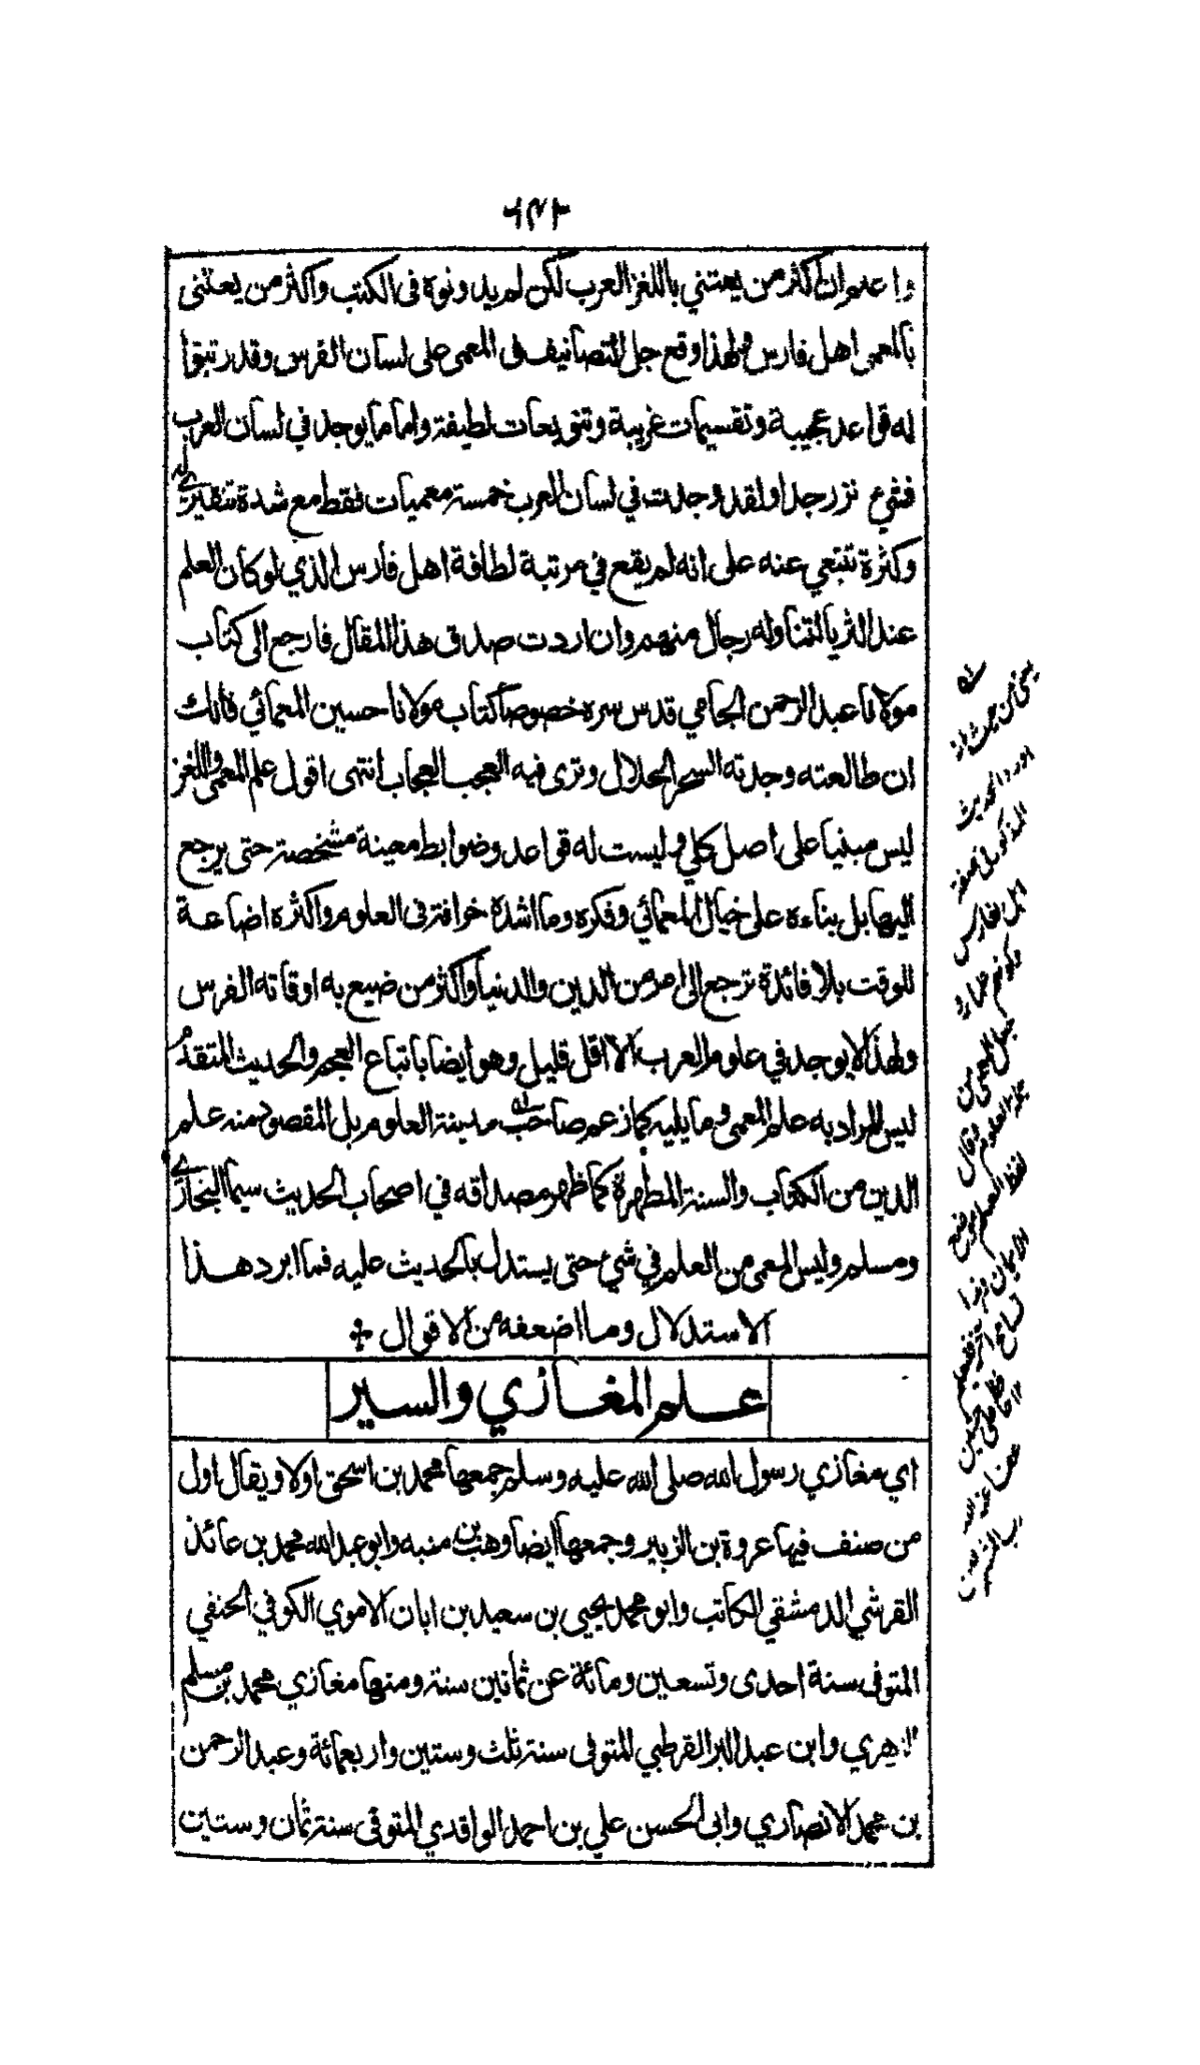 ٦٤٣
واعلم ان اكثر من يعتني باللغز العرب لكن لم يدونوه في الكتب واكثر من يعتنى
بالمعمى اهل فارس ولهذا وقع جل التصانيف في المعمى على لسان الفرس وقد رتبوا
له قواعد عجيبة وتقسيمات غريبة وتنويعات لطيفة واما ما يوجد في لسان العرب
فشيء نزر جدا ولقد وجدت في لسان العرب خمسة معميات فقط مع شدة تنقيري له
وكثرة تتبعي عنه على انه لم يقع في مرتبة لطافة اهل فارس الذي لو كان العلم
عند الثريا لتناوله رجال منهم وان اردت صدق هذا المقال فارجع الى كتاب
مولانا عبد الرحمن الجامي قدس سره خصوصا كتاب مولانا حسين المعمائي فانك
ان طالعته وجدته السحر الحلال وترى فيه العجب العجاب انتهى اقول علم المعمى واللغز
ليس مبنيا على اصل كلي وليست له قواعد وضوابط معينة مشخصة حتى يرجع
اليها بل بناءه على خيال المعمائي وفكره وما اشده خرافة في العلوم واكثره اضاعة
للوقت بلا فائدة ترجع الى امر من الدين والدنيا واكثر من ضيع به اوقاته الفرس
ولهذا لا يوجد في علوم العرب الا اقل قليل وهو ايضا باتباع العجم والحديث المتقدم
ليس المراد به علم المعمى وما يليه كما زعم صاحب مدينة العلوم بل المقصود منه علم
الدين من الكتاب والسنة المطهرة كما ظهر مصداقه في اصحاب الحديث سيما البخاري
ومسلم وليس المعمى من العلم في شيء حتى يستدل بالحديث عليه فما ابرد هذا
الاستدلال وما اضعفه من الاقوال
علم المغازي والسير
اي مغازي رسول الله صلى الله عليه وسلم جمعها محمد بن اسحق اولا ويقال اول
من صنف فيها عروة بن الزبير وجمعها ايضا وهب بن منبه وابو عبد الله محمد بن عائذ
القرشي الدمشقي الكاتب وابو محمد يحيى بن سعيد بن ابان الاموي الكوفي الحنفي
المتوفى سنة احدى وتسعين ومائة عن ثمانين سنة ومنها مغازي محمد بن مسلم
الزهري وابن عبد البر القرطبي المتوفى سنة ثلث وستين واربعمائة وعبد الرحمن
بن محمد الانصاري وابى الحسن علي بن احمد الواقدي المتوفى سنة ثمان وستين